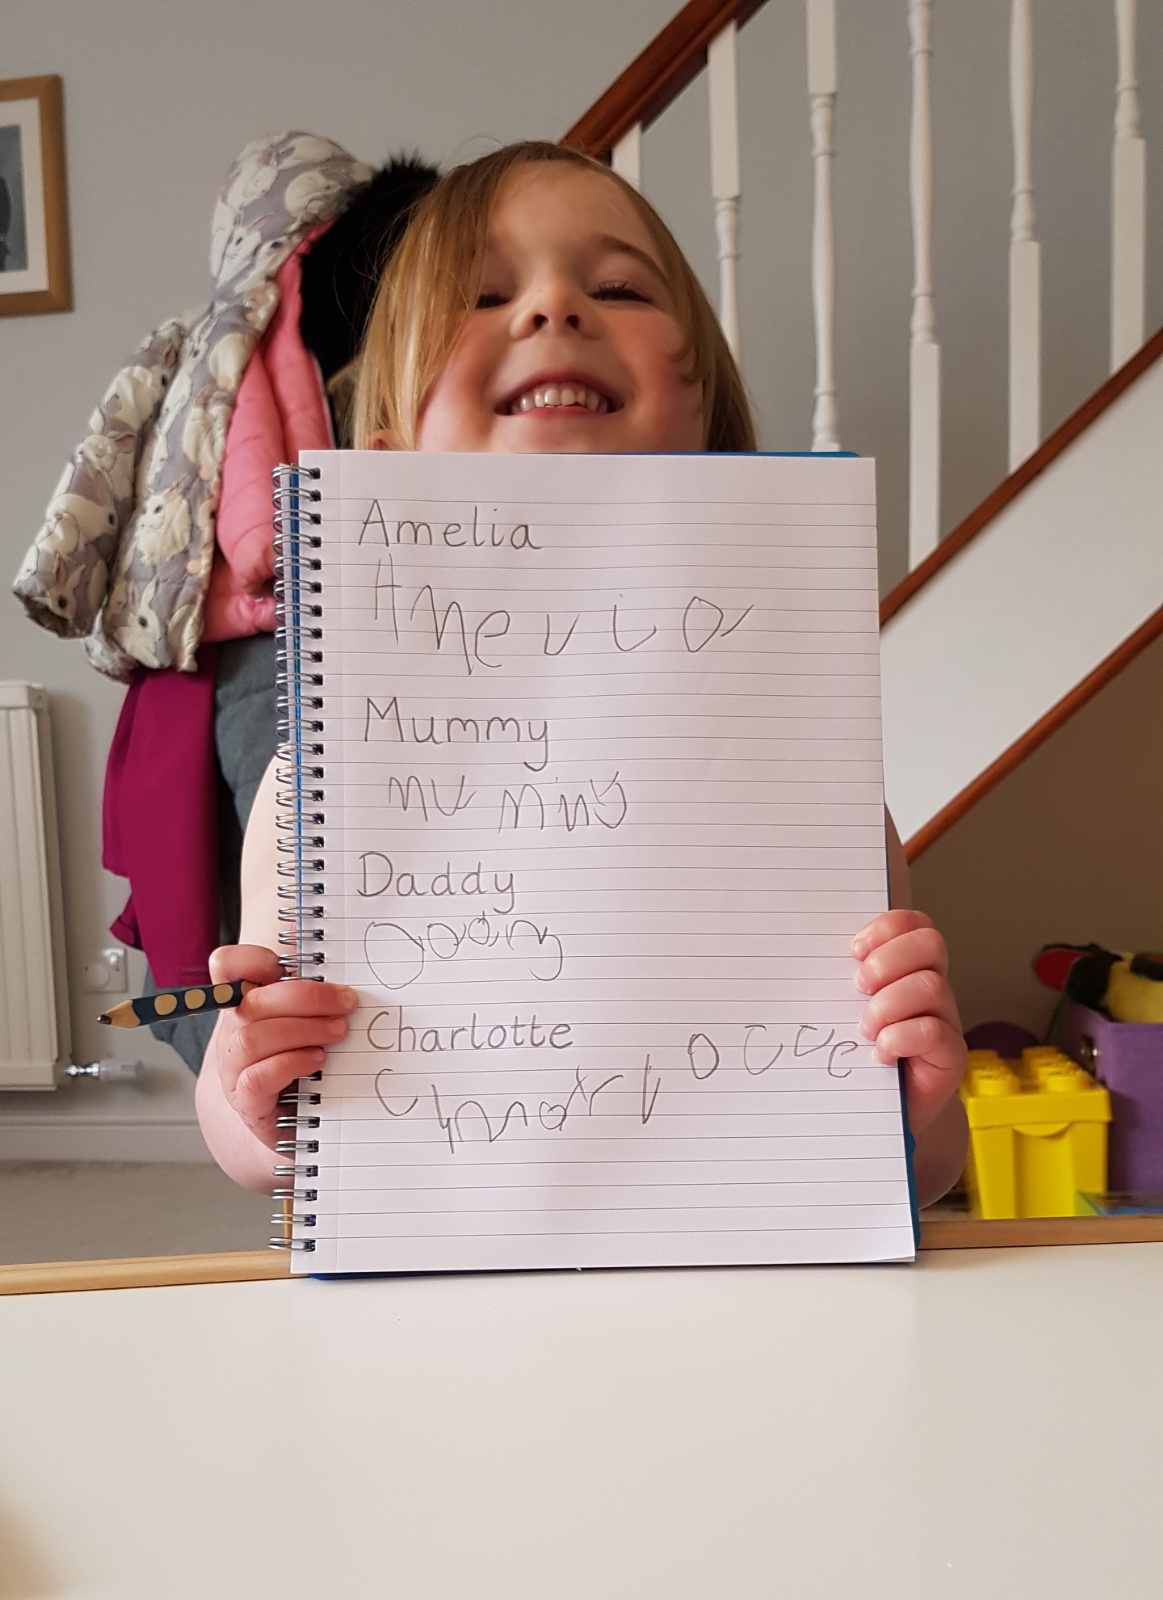 Amelia
Amelia
Mummy
Mummy
Daddy
Daddy
Charlotte
Charlotte